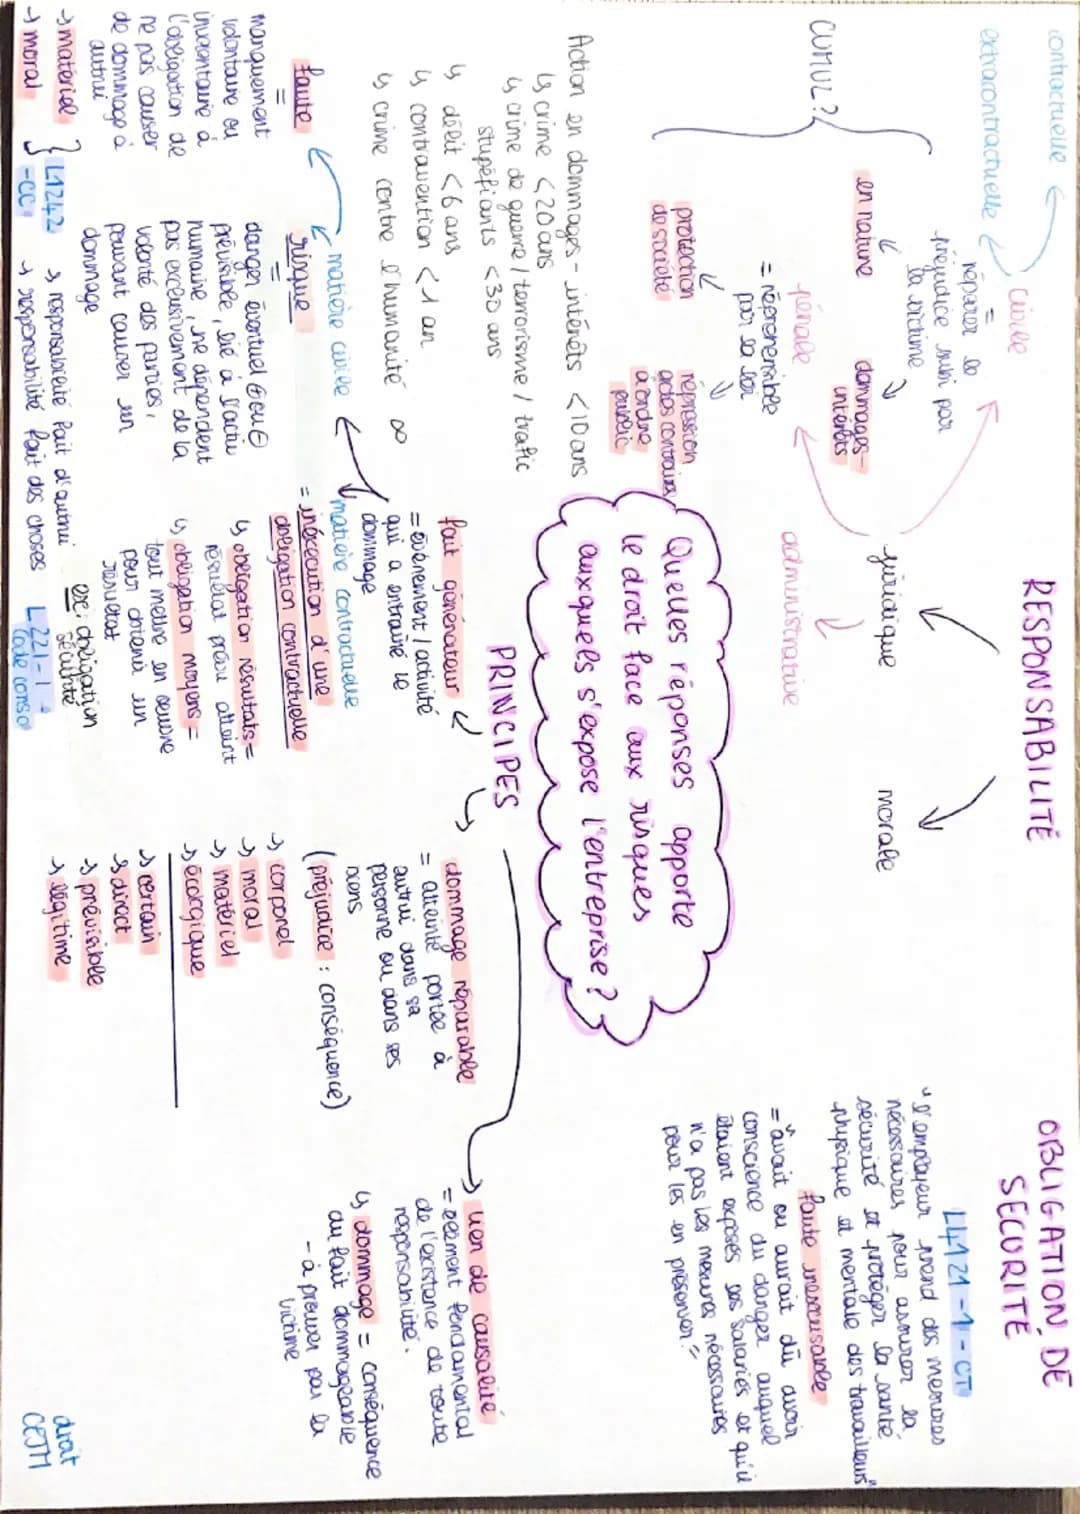 RESPONSABILITÉ
juridique
morale
civile
contractuelle
extracontractuelle
=
réparer le
préjudice subi par
la victime
en nature
dommages-
intérêts
CUMUL?
pénale
= répréhensible
par la loi
protection
de société
répression
actes contraires
à ordre
public
administrative
Action en dommages-intérêts <10 ans
↳ crime <20 ans
↳ crime de guerre / terrorisme / trafic
stupéfiants <30 ans
↳ délit <6 ans
↳ contravention <1 an
↳ crime contre l'humanité ∞
Quelles réponses apporte
le droit face aux risques
auxquels s'expose l'entreprise?
OBLIGATION DE
SECURITÉ
L4121-1-CT
"l'employeur prend des mesures
nécessaires pour assurer la
sécurité et protéger la santé
physique et mentale des travailleurs"
faute inexcusable
= "avait ou aurait dû avoir
conscience du danger auquel
étaient exposés ses salariés et qu'il
n'a pas les mesures nécessaires
pour les en préserver."
PRINCIPES
fait générateur
= évènement / activité
qui a entraîné le
dommage
matière civile
faute
=
manquement
volontaire ou
involontaire à
l'obligation de
ne pas causer
de dommage à
autrui
→ matériel
→ moral
L1242
-CC
→ responsabilité fait d'autrui
→ responsabilité fait des choses
risque
=
danger éventuel ⊕ ou ⊖
prévisible, lié à l'activ
humaine, ne dépendent
pas exclusivement de la
volonté des parties,
pouvant causer un
dommage
matière contractuelle
= inexécution d'une
obligation contractuelle
↳ obligation résultats =
résultat prévu atteint
↳ obligation moyens =
tout mettre en oeuvre
pour obtenir un
résultat
exc: obligation
sécurité
L221-1
code conso
dommage réparable
= atteinte portée à
autrui dans sa
personne ou dans ses
biens
(préjudice : conséquence)
→ corporel
→ moral
→ matériel
→ écologique
→ certain
→ direct
→ prévisible
→ légitime
lien de causalité
= élément fondamental
de l'existence de toute
responsabilité.
↳ dommage = conséquence
du fait dommageable
- à prouver par la
victime
droit
CEJM